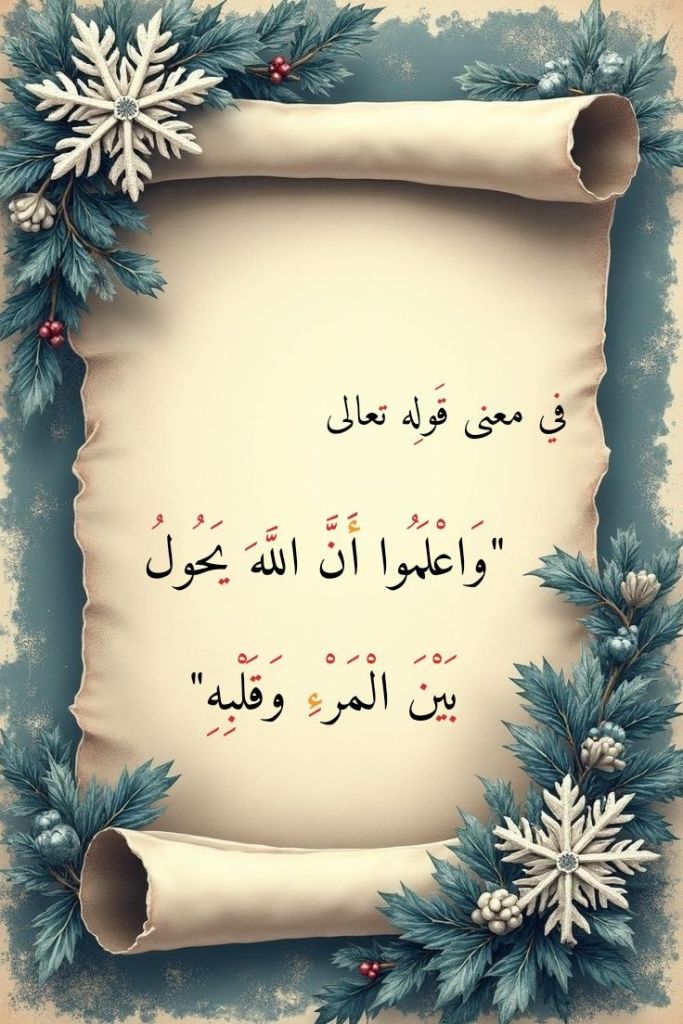 في معنى قَولِه تعالى
"وَاعْلَمُوا أَنَّ اللَّهَ يَحُولُ
بَيْنَ الْمَرْءِ وَقَلْبِهِ"